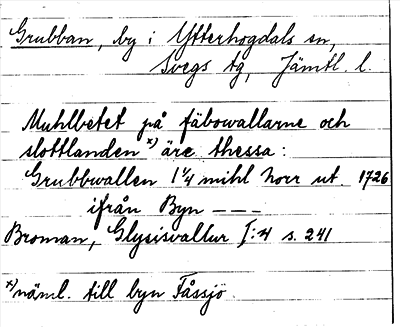 Grubban, by i Ytterhogdals sn,
Svegs tg, Jämtl. l.
Muhlbetet på fäbowallarne och
slottlanden x) äre thessa:
Grubbwallen 1 1/4 mihl norr ut. 1726
ifrån Byn ---
Broman, Glysisvallur I:4 s. 241
x) näml. till byn Fåssjö